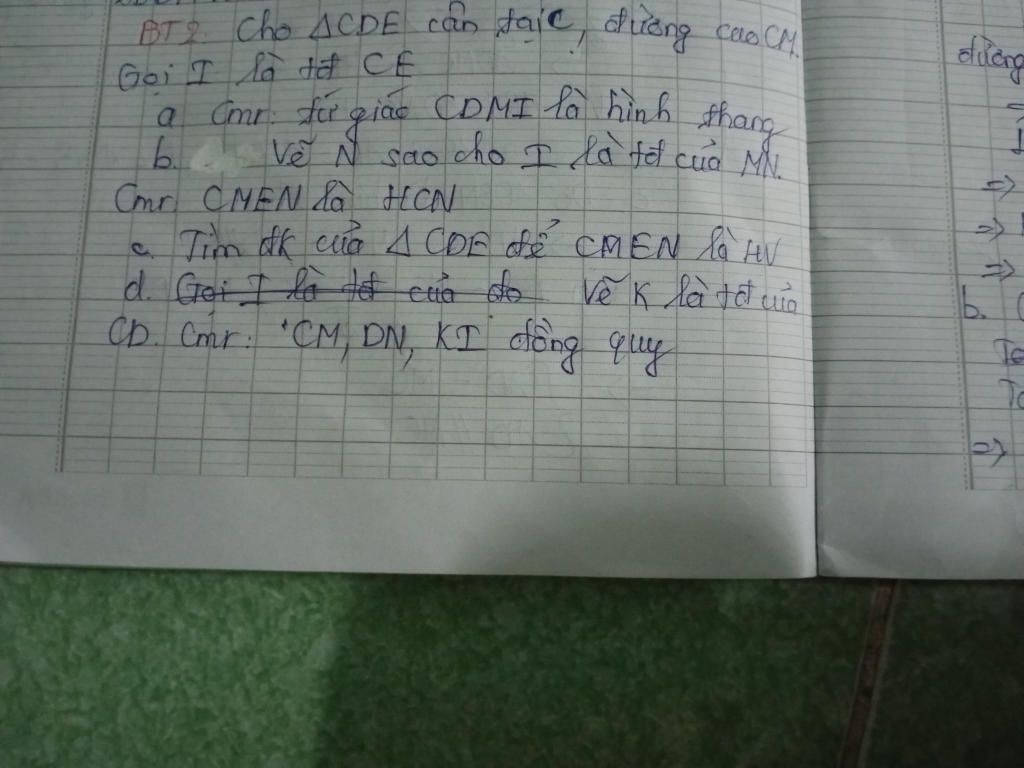 BT2. Cho ΔCDE cân tại C, đường cao CM.
Gọi I là tđ CE
a Cmr: tứ giác CDMI là hình thang
b. Vẽ N sao cho I là tđ của MN.
Cmr CMEN là HCN
c. Tìm đk của ΔCDE để CMEN là HV
d. Gọi I là tđ của do Vẽ K là tđ của
CD. Cmr: CM, DN, KI đồng quy
đường
=>
=>
=>
b.
=>